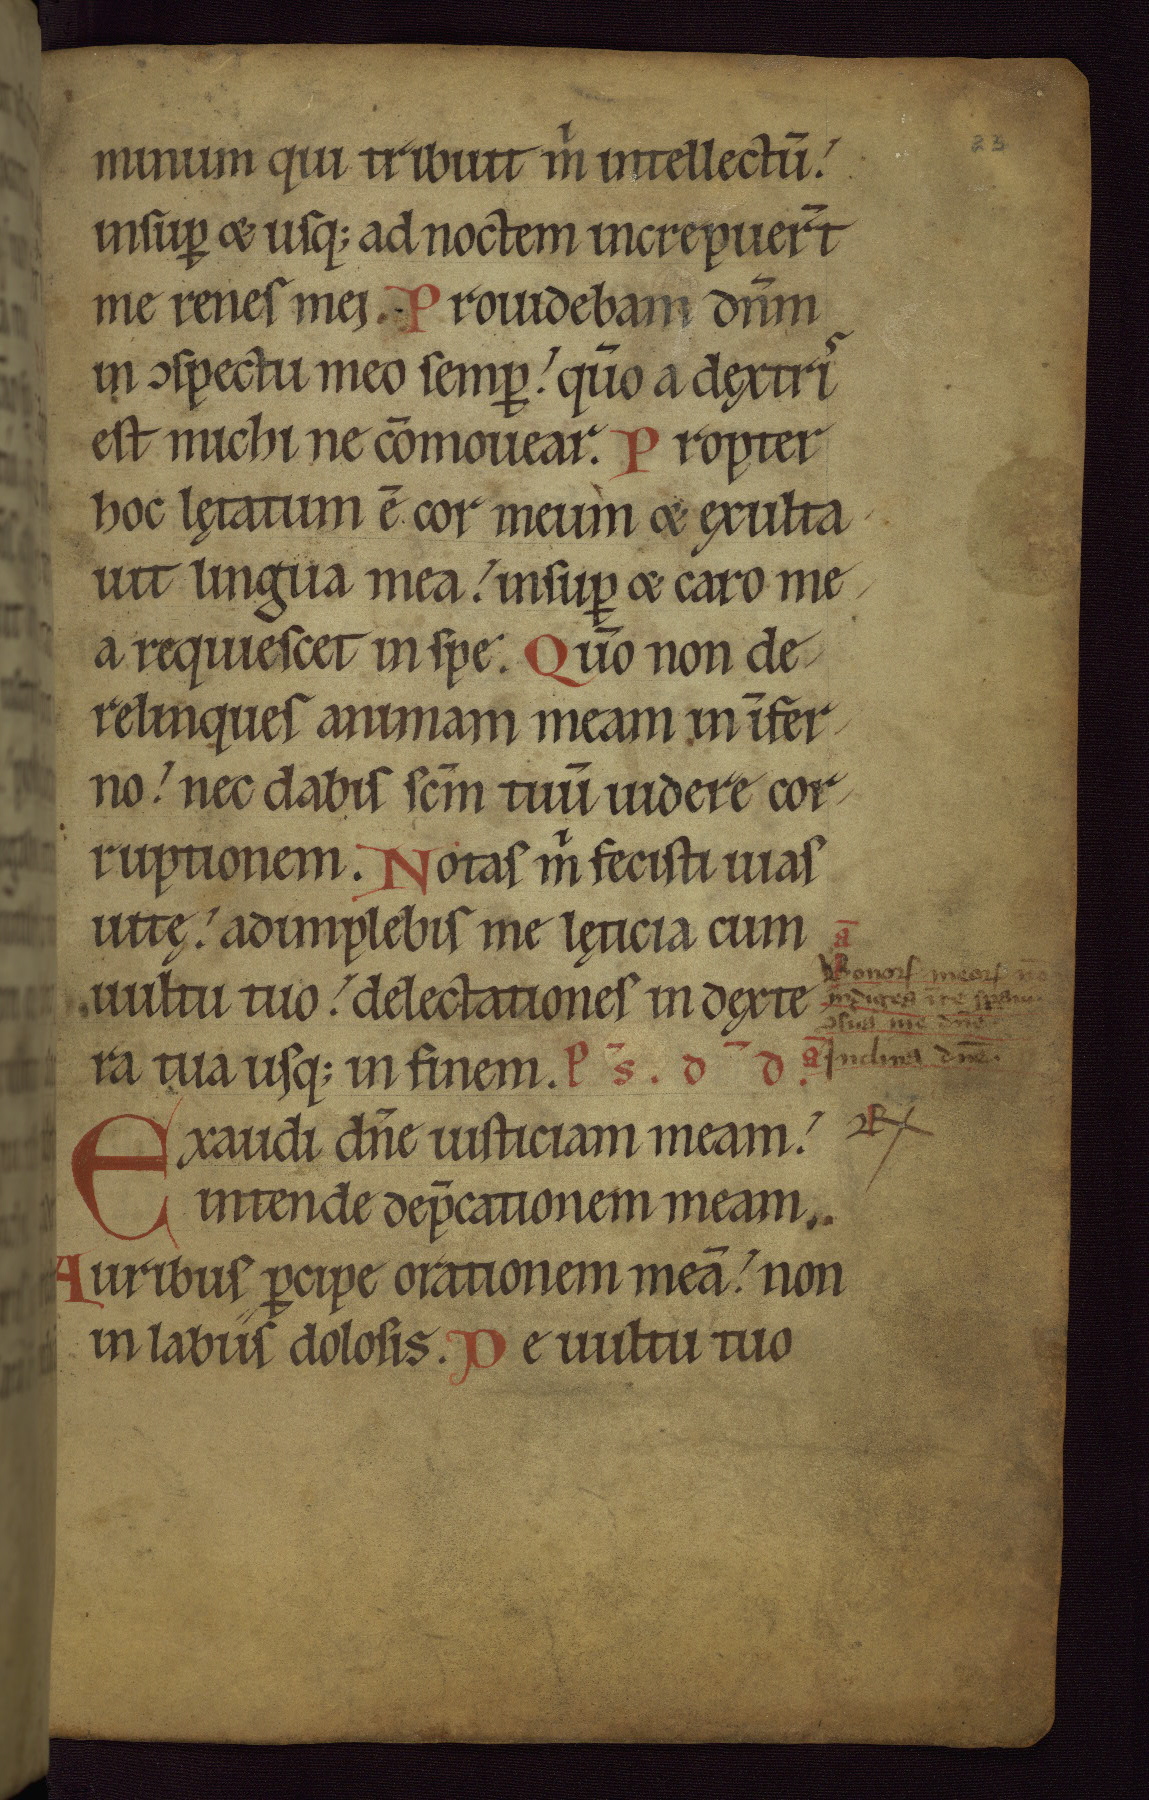 23
minum qui tribuit m̄ intellectū:
insup̱ & usq; ad noctem increpuer̄t
me renes mei. Prouidebam dn̄m
in ɔspectu meo semp̱: qūo a dęxtris
est michi ne cōmouear. Propter
hoc lętatum ē cor meum & ęxulta
uit lingua mea: insup̱ & caro me
a requiescet in spe. Qūo non de
relinques animam meam in īfer
no: nec dabis scm̄ tuū uidere cor
ruptionem. Notas m̄ fecisti uias
uitę: adimplebis me lęticia cum
uultu tuo: delectationes in dęxte
ra tua usq; in finem. P s̄. d ̄ d.
Exaudi dn̄e iusticiam meam:
intende dep̄cationem meam.
Auribus p̱cipe orationem meā: non
in labiis dolosis. De uultu tuo
ā
Bonorꝭ meorꝭ
me dn̄e.
ā Inclina dn̄e.